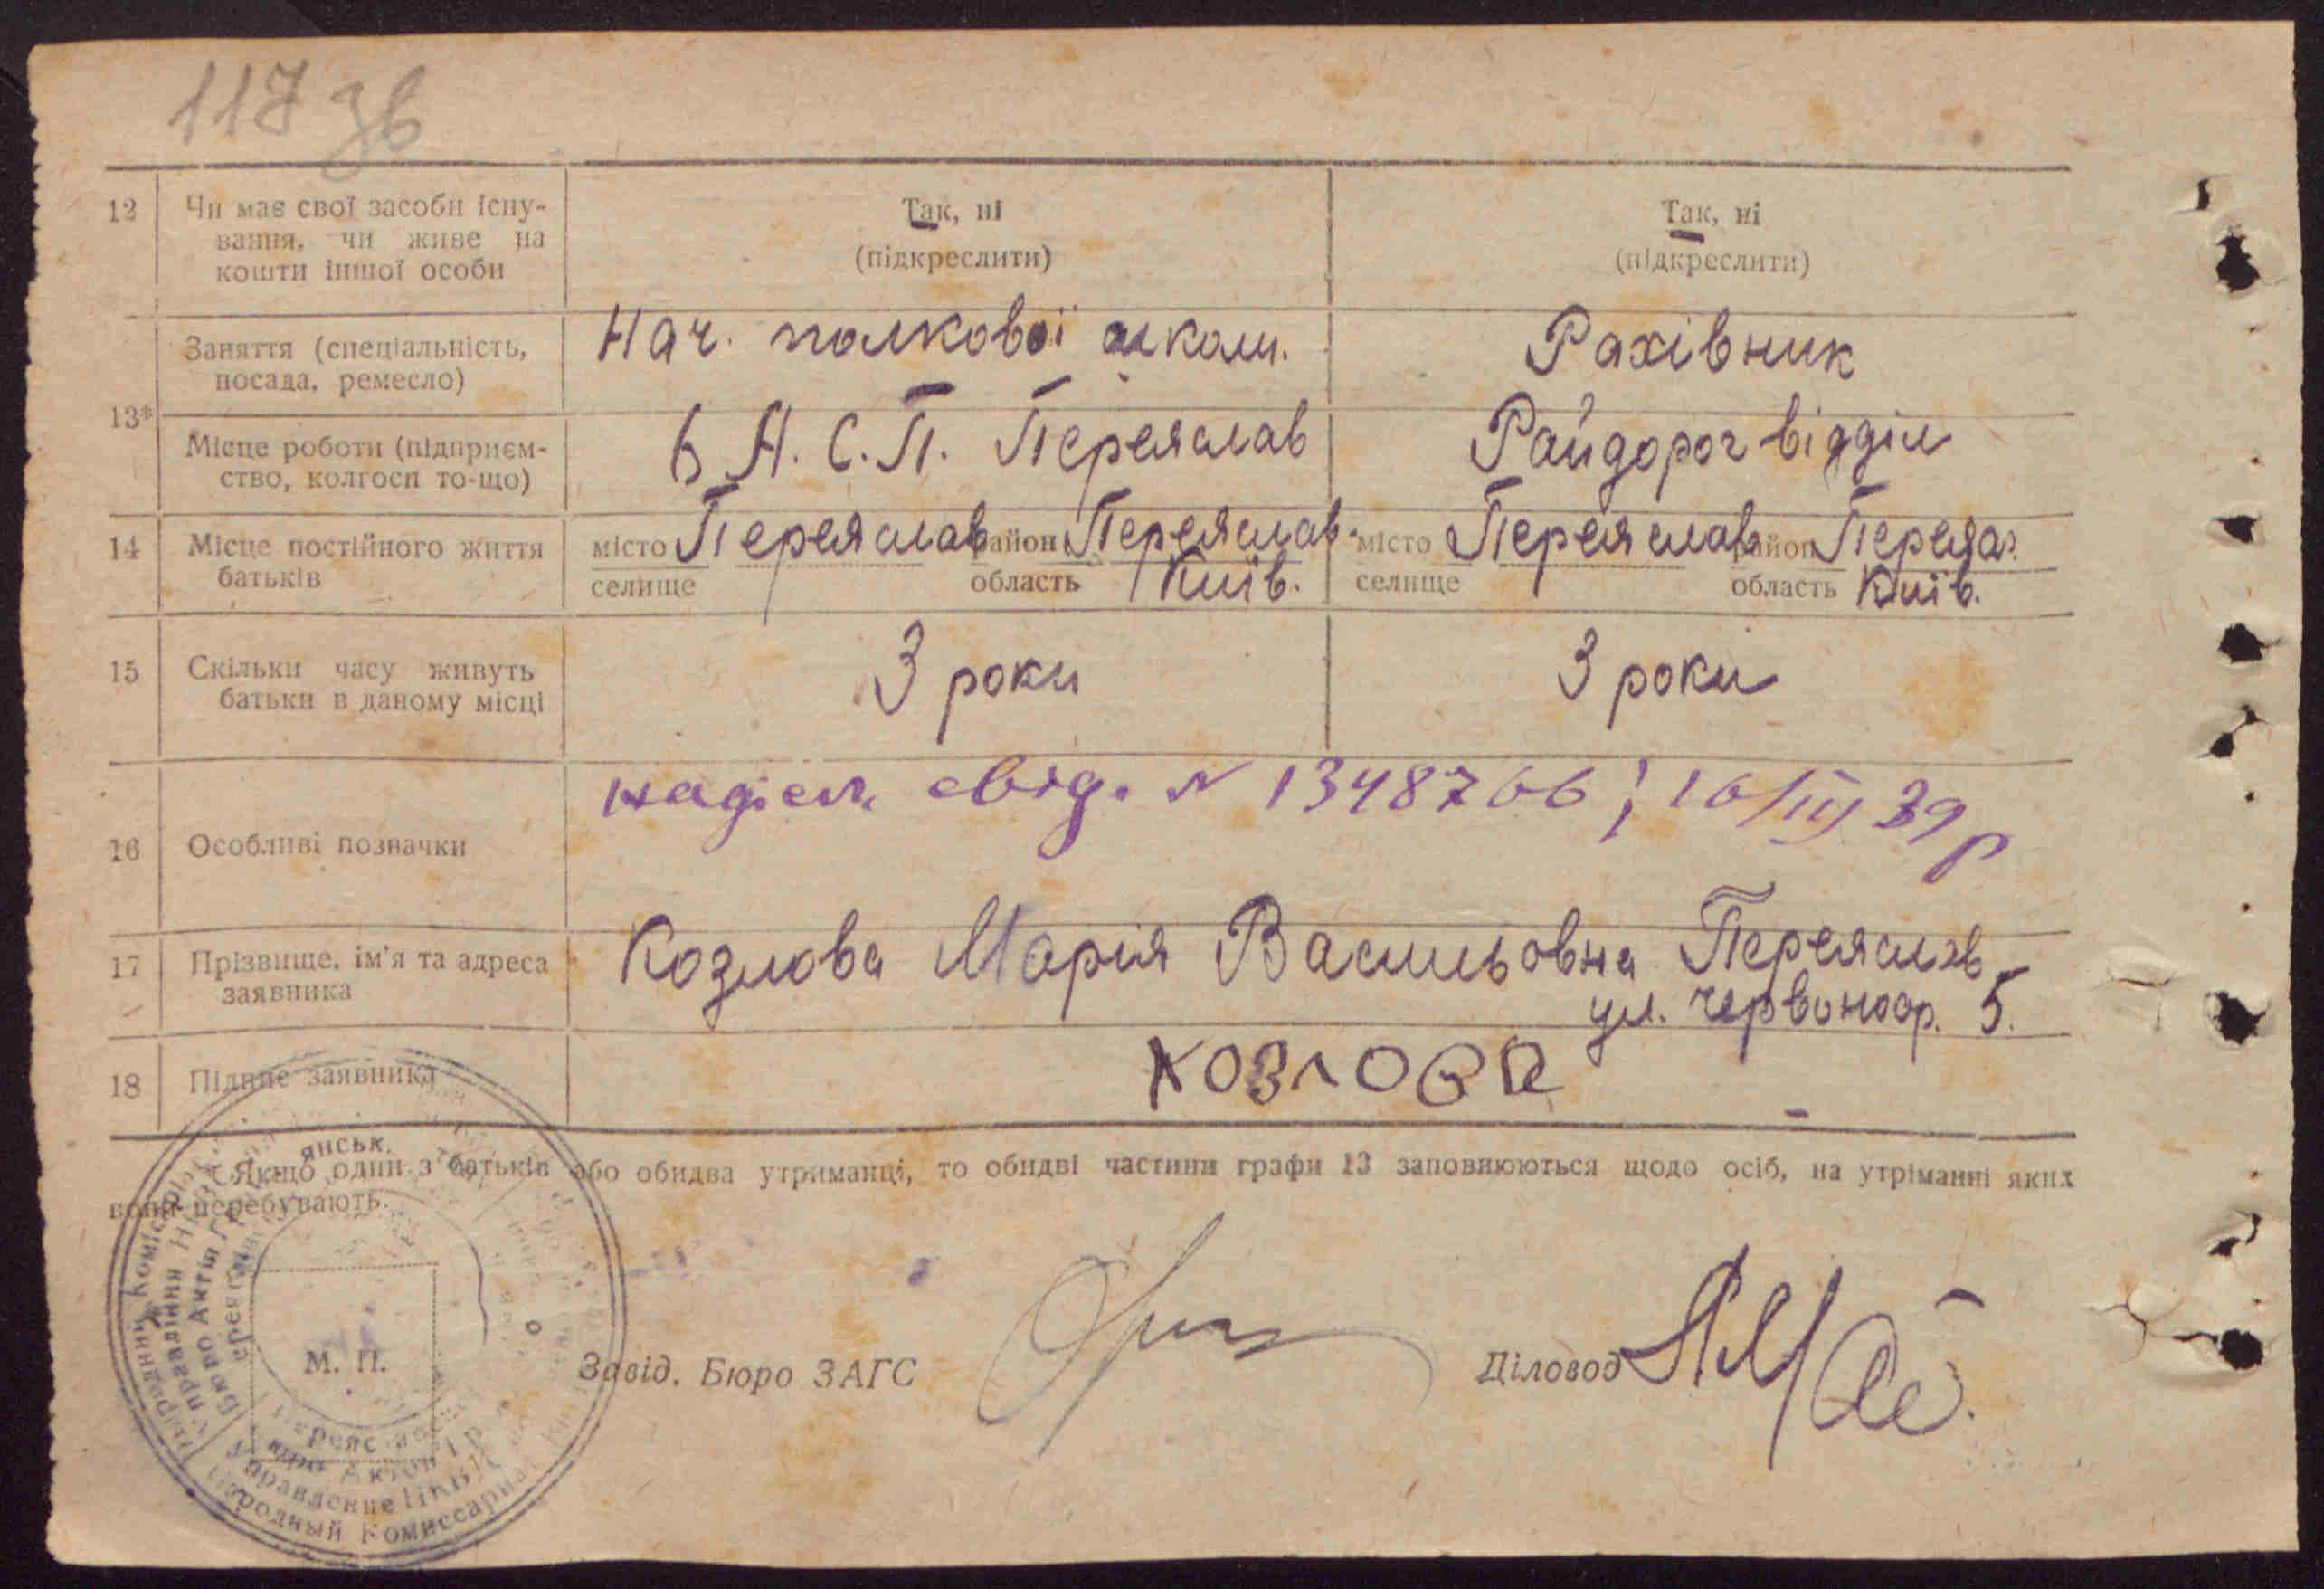 117 зв
12 Чи має свої засоби існу- Так, ні Так, ні
вання, чи живе на (підкреслити) (підкреслити)
кошти іншої особи
Заняття (спеціальність, Нач. полкової школи. Рахівник
посада, ремесло)
13*
Місце роботи (підприєм- А. С. П. Переяслав Райдорог відділ
ство, колгосп то-що)
14 Місце постійного життя місто Переяслав район Переяслав. місто Переяслав район Переяс.
батьків селище область Київ. селище область Київ.
15 Скільки часу живуть 3 роки 3 роки
батьки в даному місці
свід. N 1348766; 16/III 39 р
16 Особливі позначки
17 Прізвище, ім'я та адреса Козлова Марія Васильовна Переяслав
заявника ул. Червоноар. 5.
18 Підпис заявника Козлова
*Якщо один з батьків або обидва утриманці, то обидві частини графи 13 заповнюються щодо осіб, на утріманні яких
вони перебувають.
М. П. Завід. Бюро ЗАГС Діловод
Управление НКВД
Народный Комиссариат